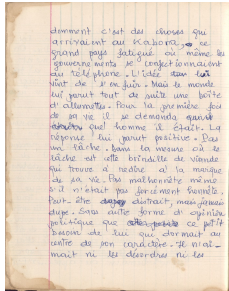 domment c'est des choses qui
arrivaient au Kabora, ce
grand pays fatigué où même les
gouvernements se confectionnaient
au téléphone. L'idée lui
vint de s'en fuir. Mais le monde
lui parut tout de suite une boîte
d'allumettes. Pour la première fois
de sa vie il se demanda
quel homme il était. La
réponse lui parut positive. Pas
un lâche. Dans la mesure où le
lâche est cette brindille de viande
qui trouve à redire à la marque
de sa vie. Pas malhonnête même
s'il n'était pas forcément honnête.
Peut-être distrait, mais jamais
dupe. Sans autre forme d'opinion
politique que ce petit
besoin de lui qui dormait au
centre de son caractère. Il n'ai-
mait ni les désordres ni les